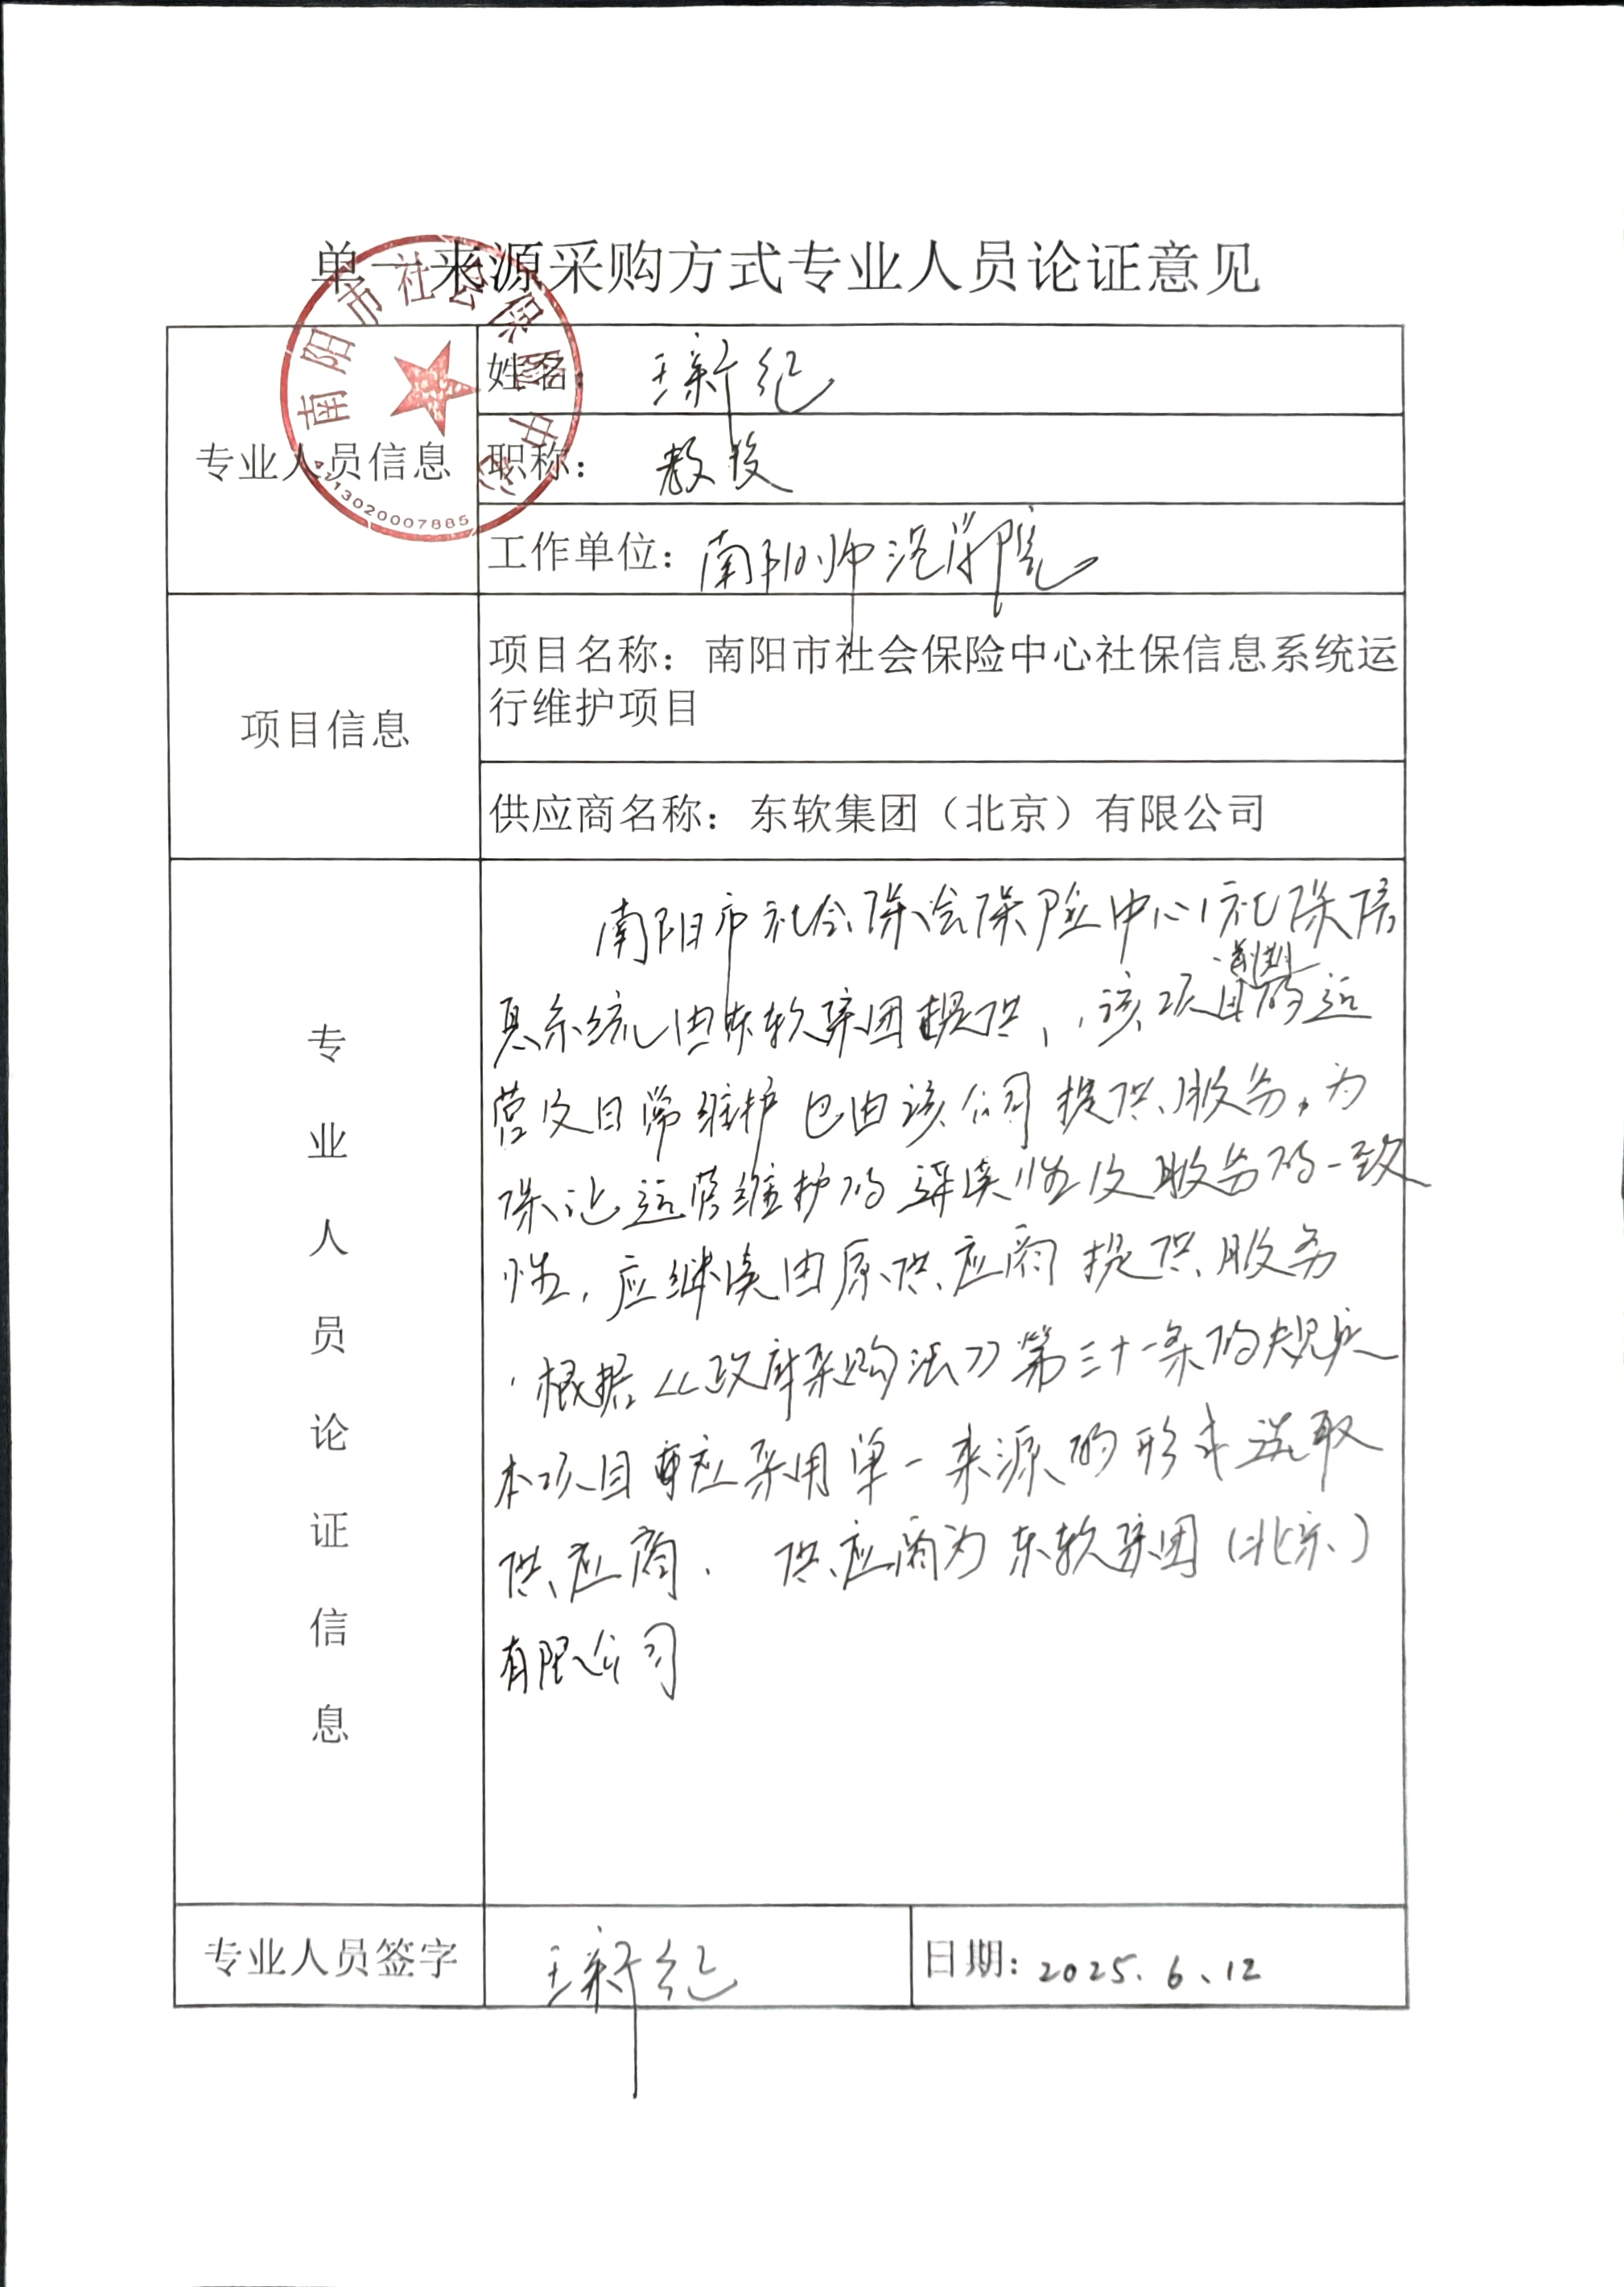 单一来源采购方式专业人员论证意见
南阳市社会保险中心
4113020007885
专业人员信息
姓名：王新纪
职称：教授
工作单位：南阳师范学院
项目信息
项目名称：南阳市社会保险中心社保信息系统运
行维护项目
供应商名称：东软集团（北京）有限公司
专业人员论证信息
南阳市社会保险中心社保信
息系统由东软集团提供，该项目前期的运
营及日常维护已由该公司提供服务，为
保证运营维护的连续性及服务的一致
性，应继续由原供应商提供服务
根据《政府采购法》第三十一条的规定
本项目应采用单一来源的形式选取
供应商．供应商为东软集团（北京）
有限公司
专业人员签字
王新纪
日期：2025.6.12